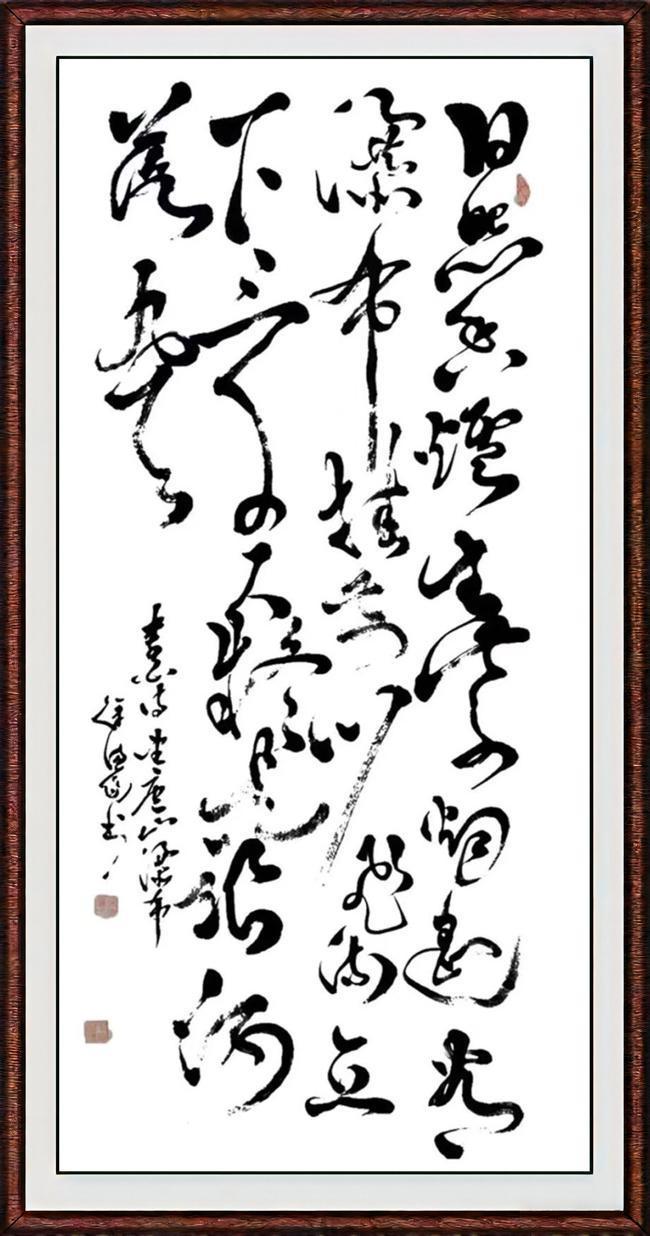 日照香爐生紫烟遥看
瀑布挂前川飛流直
下三千尺疑是銀河
落九天
李白诗望庐山瀑布
徐 书